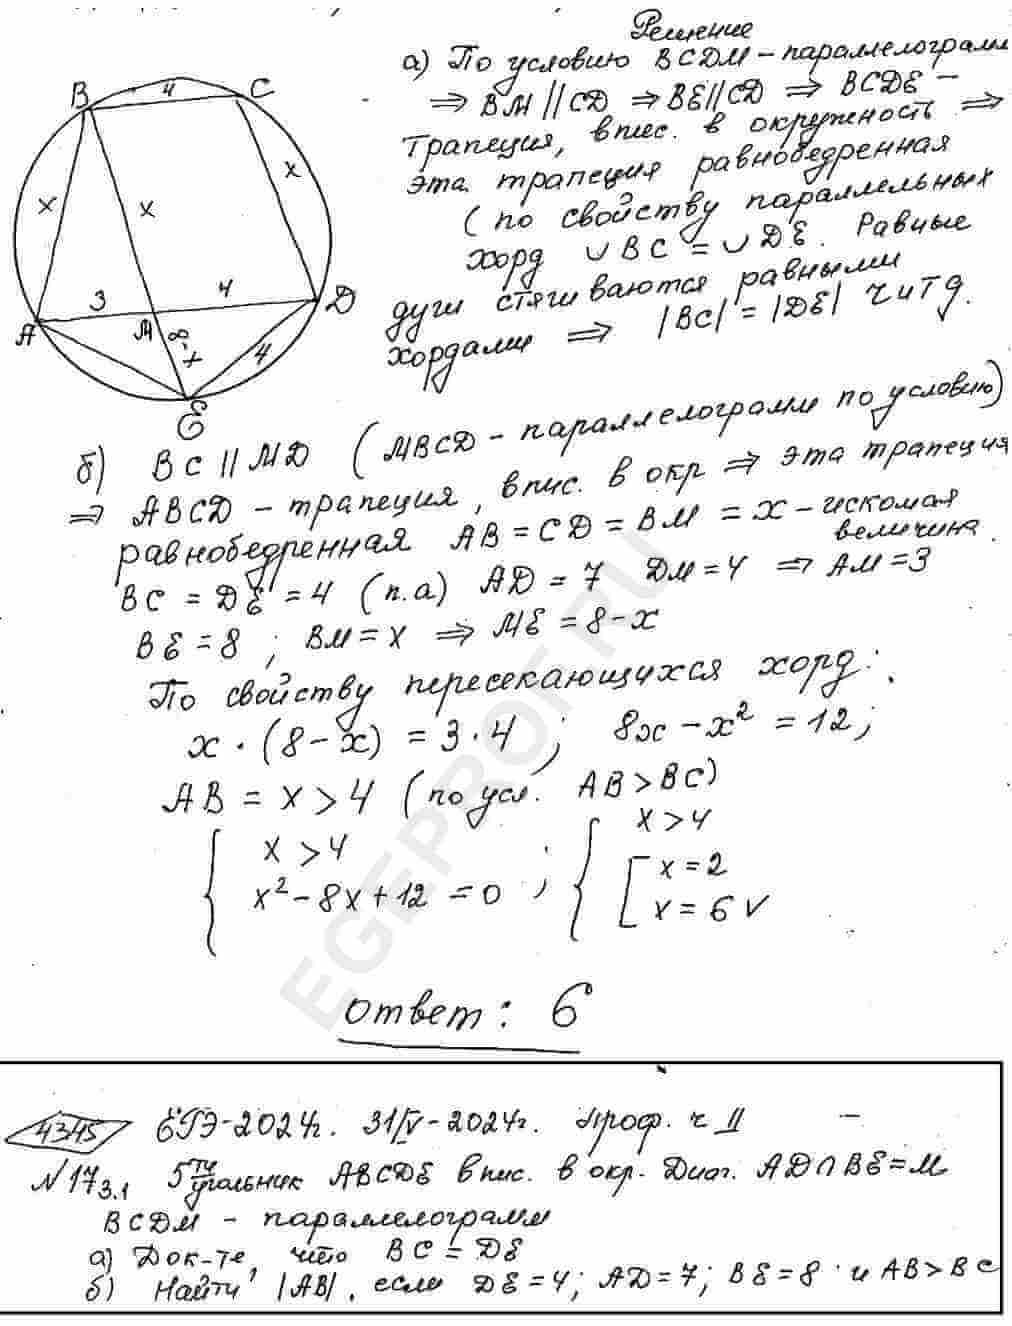 Решение
а) По условию BCDM – параллелограмм
⇒ BM || CD ⇒ BE || CD ⇒ BCDE –
трапеция, впис. в окружность ⇒
эта трапеция равнобедренная
(по свойству параллельных
хорд ∪BC = ∪DE. Равные
дуги стягиваются равными
хордами ⇒ |BC| = |DE| читд.
B 4 C
x x x
3 4
A M D
8-x 4
E
б) BC || MD (MBCD – параллелограмм по условию)
⇒ ABCD – трапеция, впис. в окр ⇒ эта трапеция
равнобедренная AB = CD = BM = x – искомая
величина.
BC = DE = 4 (п.а) AD = 7 DM = 4 ⇒ AM = 3
BE = 8 ; BM = x ⇒ ME = 8-x
По свойству пересекающихся хорд:
x · (8-x) = 3·4 ; 8x - x² = 12 ;
AB = x > 4 (по усл. AB > BC)
{ x > 4 ; { x > 4
x² - 8x + 12 = 0 [ x = 2
x = 6 ✓
Ответ: 6
EGEPROF.RU
4345 ЕГЭ-2024г. 31/V-2024г. Проф. ч II
N 17 3.1 5ти угольник ABCDE впис. в окр. Диаг. AD ∩ BE = M
BCDM – параллелограмм
а) Док-те, что BC = DE
б) Найти |AB|, если DE = 4; AD = 7; BE = 8 и AB > BC